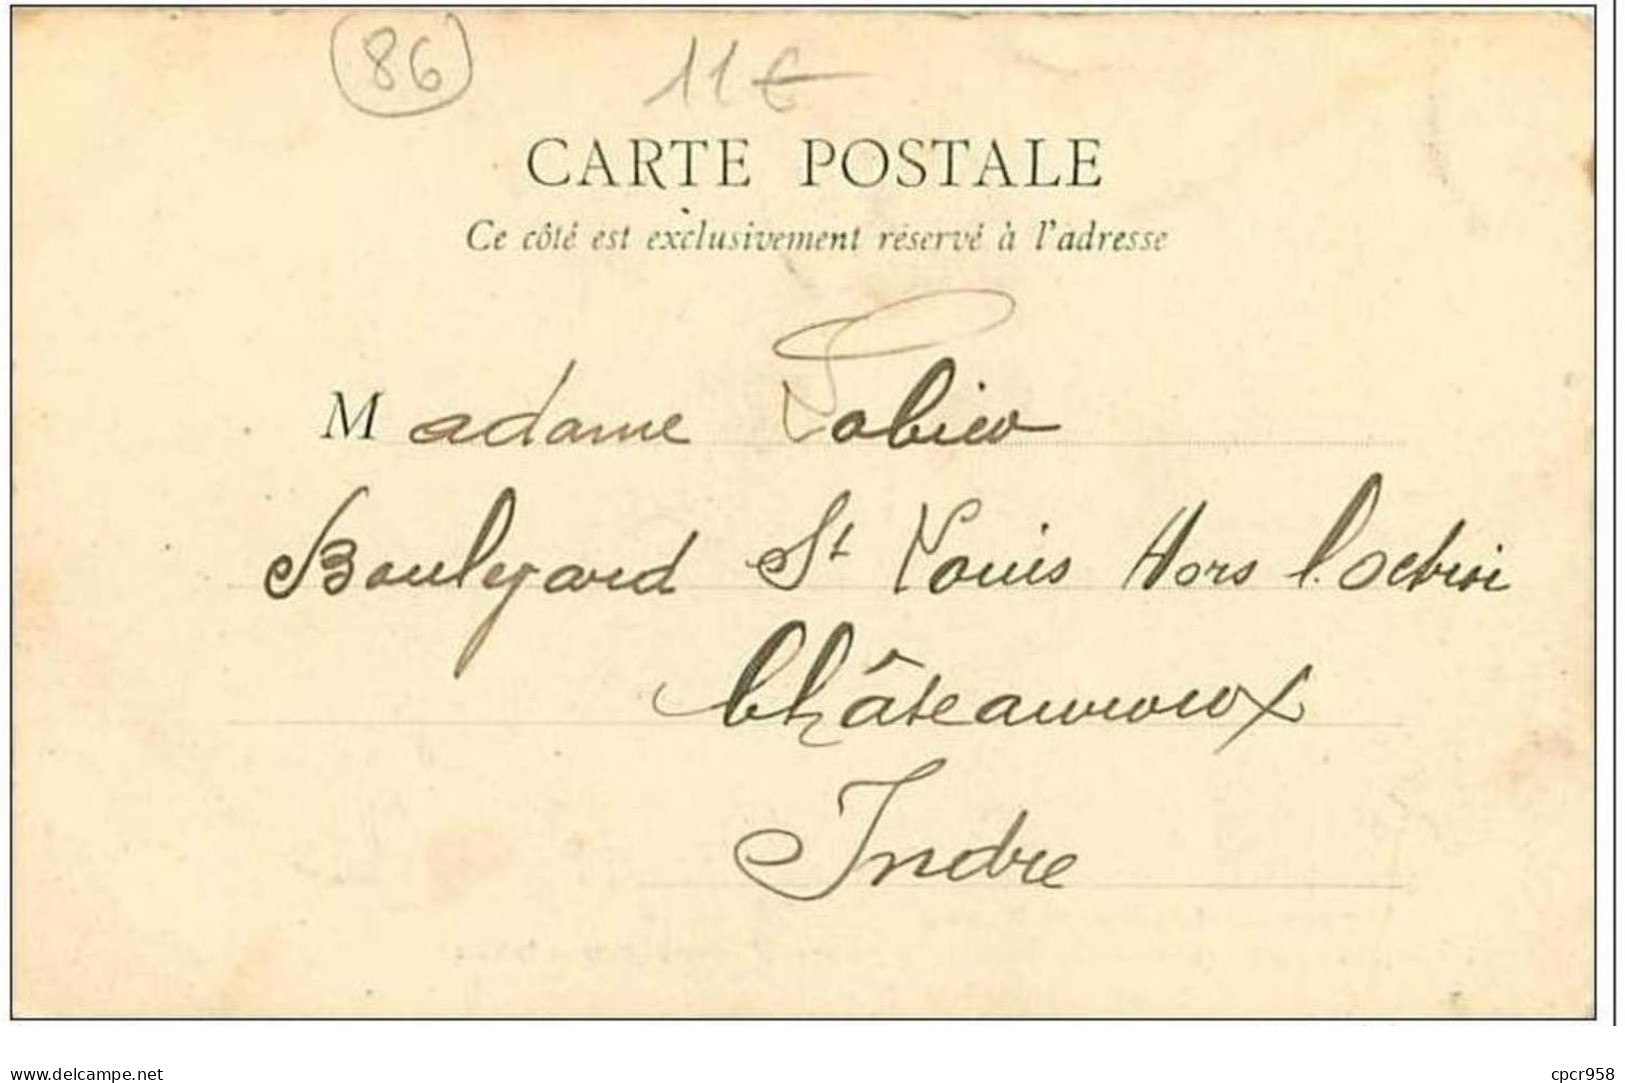 86
11€
CARTE POSTALE
Ce côté est exclusivement réservé à l'adresse
Madame
Boulevard St Louis Hors l'octroi
Châteauroux
Indre
www.delcampe.net
cpcr958